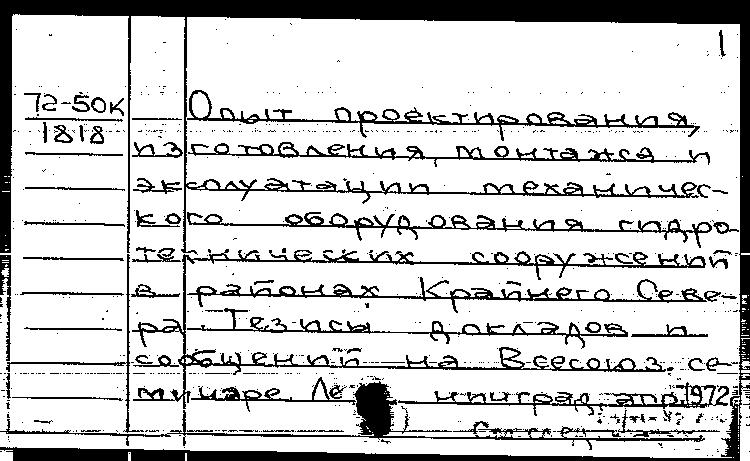 1
72-50к
1818
Опыт проектирования,
изготовления, монтажа и
эксплуатации механичес-
кого оборудования гидро
технических сооружений
в районах Крайнего Севе-
ра. Тезисы докладов и
сообщений на Всесоюз. се-
минаре. Ле нинград, апр. 1972
См. след.